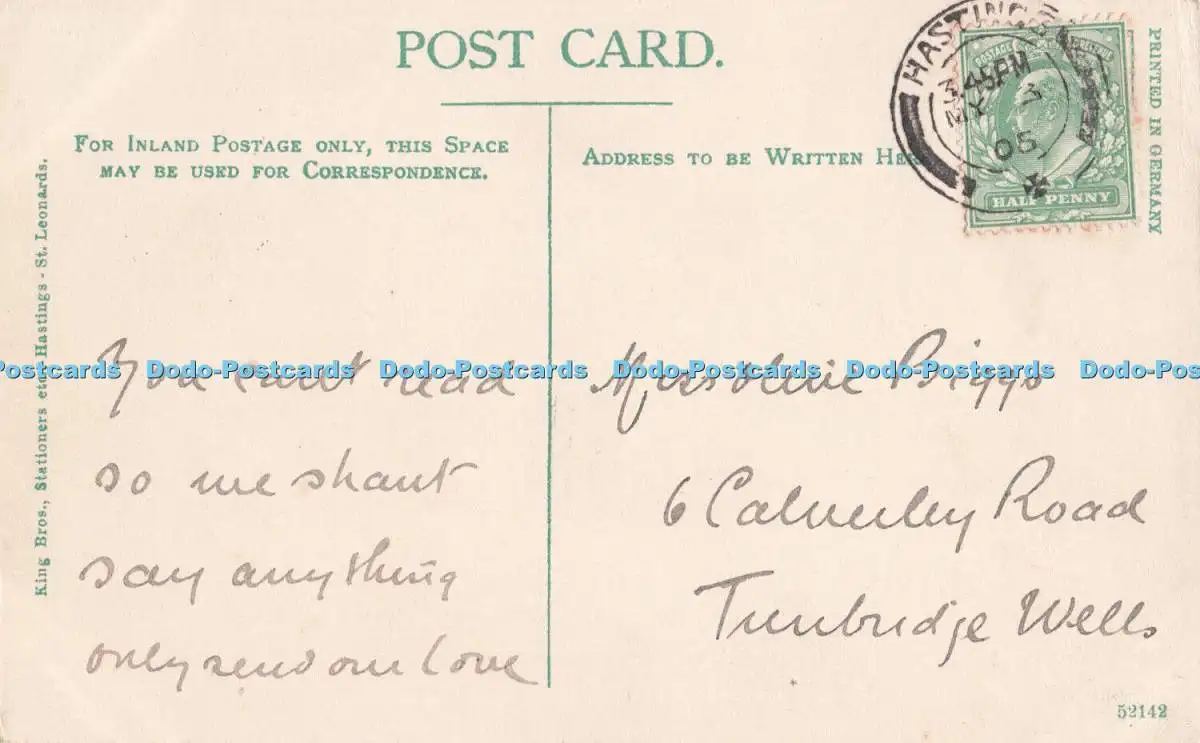 POST CARD.
FOR INLAND POSTAGE ONLY, THIS SPACE
MAY BE USED FOR CORRESPONDENCE.
ADDRESS TO BE WRITTEN HER
HASTINGS
3.45PM
MY 3
05
POSTAGE
HALF PENNY
PRINTED IN GERMANY
King Bros., Stationers etc., Hastings - St. Leonards.
You can't read
so we shant
say anything
only send our love
Miss Biggs
6 Calverley Road
Tunbridge Wells
Postcards Dodo-Postcards Dodo-Postcards Dodo-Postcards Dodo-Postcards Dodo-Pos
52142